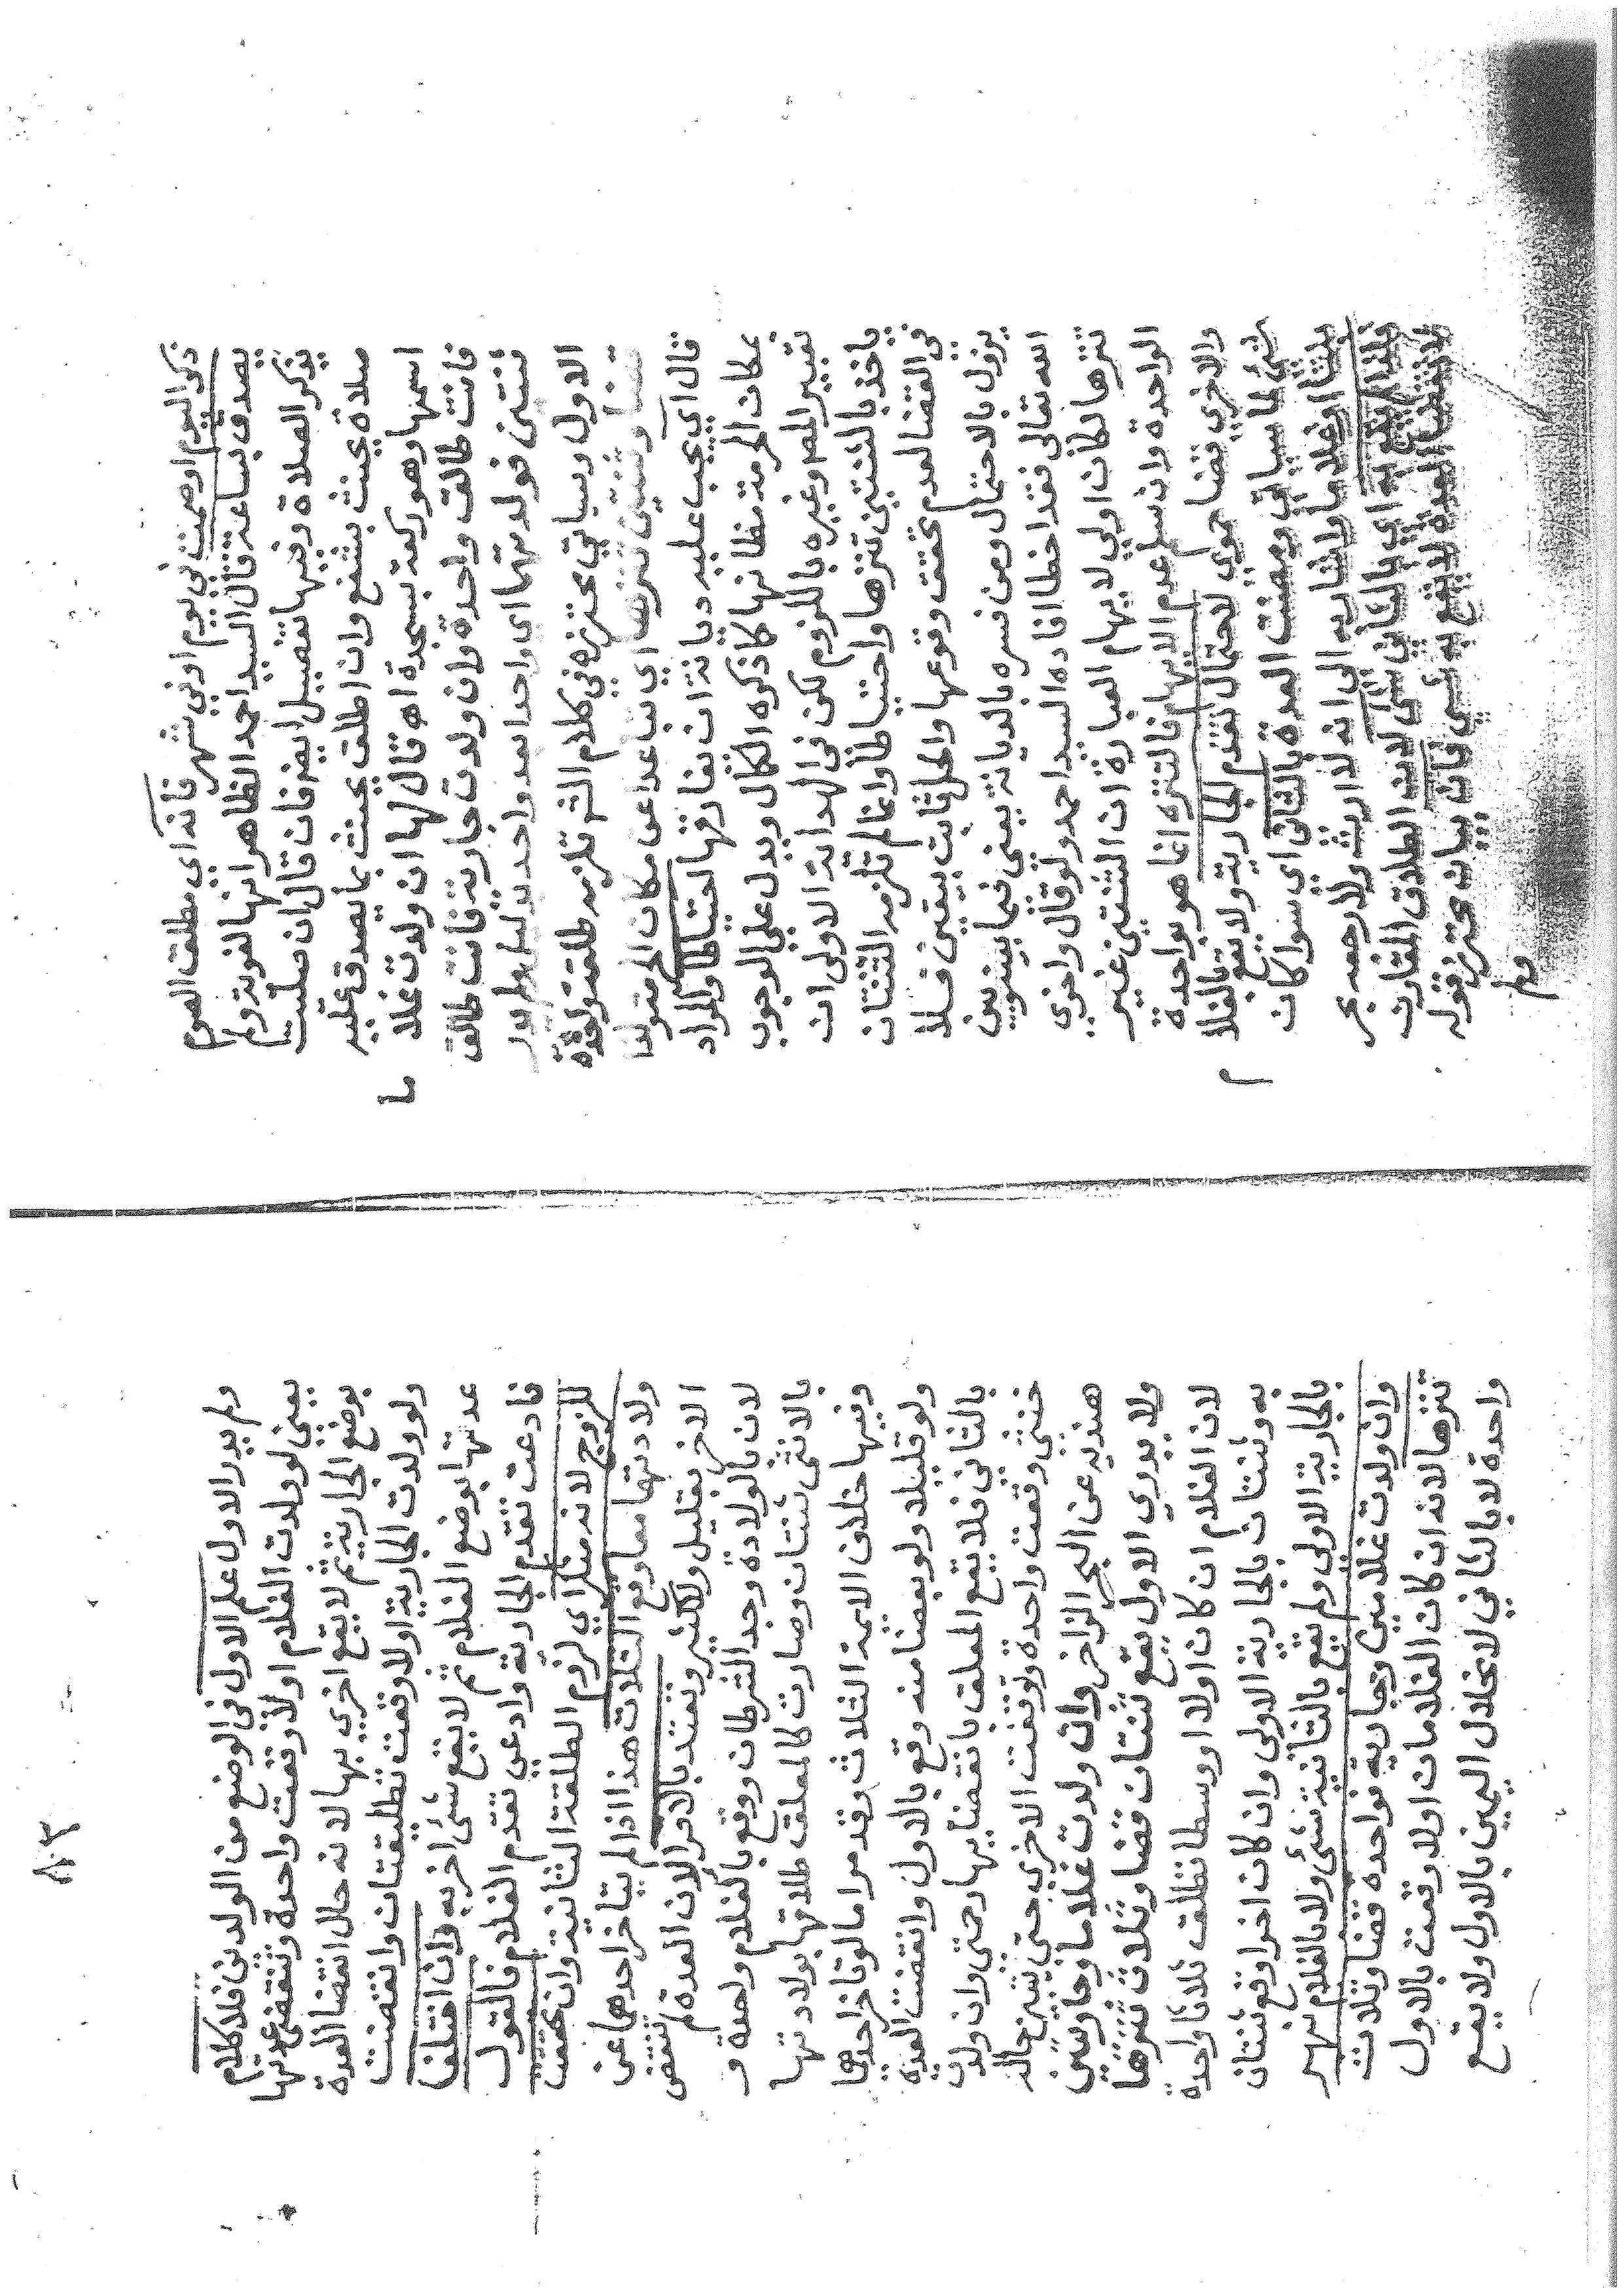 ذكر اليوم او صمت في يوم او في شهر فانه اي مطلق الصوم
يصدق بساعة قال السيد احمد الظاهر انها لغوية ولم
يذكر الصلاة وفيها تفصيل ايضا فان قال ان صليت
صلاة يحنث بشفع وان اطلق يحنث بما يصدق عليه
اسمها وهو ركعة بسجدة اه قال لها ان ولدت غلاما
فانت طالق واحدة وان ولدت جارية فانت طالق
ثنتين فولدتهما اي واحدا بعد واحد ولم يدر
الاول وسياتي محترزه في كلام الش تلزمه طلقة واحدة
قضا وثنتين تنزها اي تباعدا عن مكان الحرمة
قال اي يجب عليه ديانة ان يفارقها احتياطا والمراد
بمكان الحرمة مظانها كما ذكره الكمال ويدل على الوجوب
تعبير المص وغيره باللزوم لكن في الهداية الاولى ان
ياخذ بالثنتين تنزها واحتياطا وانما لم تلزمه الثنتان
في القضا لعدم تحقق وقوعها والحل ثابت بيقين فلا
يزول بالاحتمال ومن فسره بالديانة يعني فيما بينه وبين
الله تعالى فقد اخطا افاده السيد احمد ولو قال واخرى
تنزها لكان اولى لايهام العبارة ان الثنتين غير
الواحدة وان سلم عدم الايهام فالتنزه انما هو بواحدة
والاخرى قضا حموي لاحتمال تقدم الجارية ولا يقع بالغلام
شئ لما سياتي ومضت العدة بالثاني اي سوا كان
بنتا او غلاما واشار به الى انه لا ارث ولا رجعة بحر
فلذا لم يقع به اي بالثاني شئ لان الطلاق المقارن
لانقضا العدة لا يقع به شئ فان بيانه محترز قوله
ولم
ولم يدر الاول علم الاول في الوضع من الولدين فلا كلام
يعني لو ولدت الغلام اولا وقعت واحدة وتنقضي عدتها
بوضع الجارية ثم لا يقع اخرى بها لانه حال انقضا العدة
ولو ولدت الجارية اولا وقعت تطليقتان وانقضت
عدتها بوضع الغلام ثم لا يقع شئ اخر به وان اختلفا
فادعت تقدم الجارية وادعى تقدم الغلام فالقول
للزوج لانه منكر اي لزوم الطلقة الثانية وان تحقق
ولادتهما معا وقع الثلاث هذا اذا لم يتاخر احدهما عن
الاخر بقليل ولا كثير وتعتد بالاقرا لان العدة لم تنقض
لان بالولادة وجد الشرطان ووقع بالغلام واحدة و
بالانثى ثنتان وصارت كالمعلق طلاقها بولادتها
وفيها خلاف الايمة الثلاث وقد مر اما لو تاخر احدهما
ولو قليلا ولو بعضا منه وقع بالاول وانقضت العدة
بالثاني فلا يقع المعلق بانقضايها رحمتي وان ولدت
خنثى وقعت واحدة وتوقفت الاخرى حتى يتبين حاله
هنديه عن البحر الزاخر وان ولدت غلاما وجاريتين
ولا يدري الاول يقع ثنتان قضا وثلاث تنزها
لان الغلام ان كان اولا او وسطا تطلق ثلاثا واحدة
به وثنتان بالجارية الاولى وان كان اخرا وقع ثنتان
بالجارية الاولى ولم يقع بالثانية شئ ولا بالغلام نهر
وان ولدت غلامين وجارية فواحدة قضا وثلاث
تنزها لانه ان كان الغلامان اولا وقعت بالاول
واحدة لا بالثاني لانحلال اليمين بالاول ولا يقع